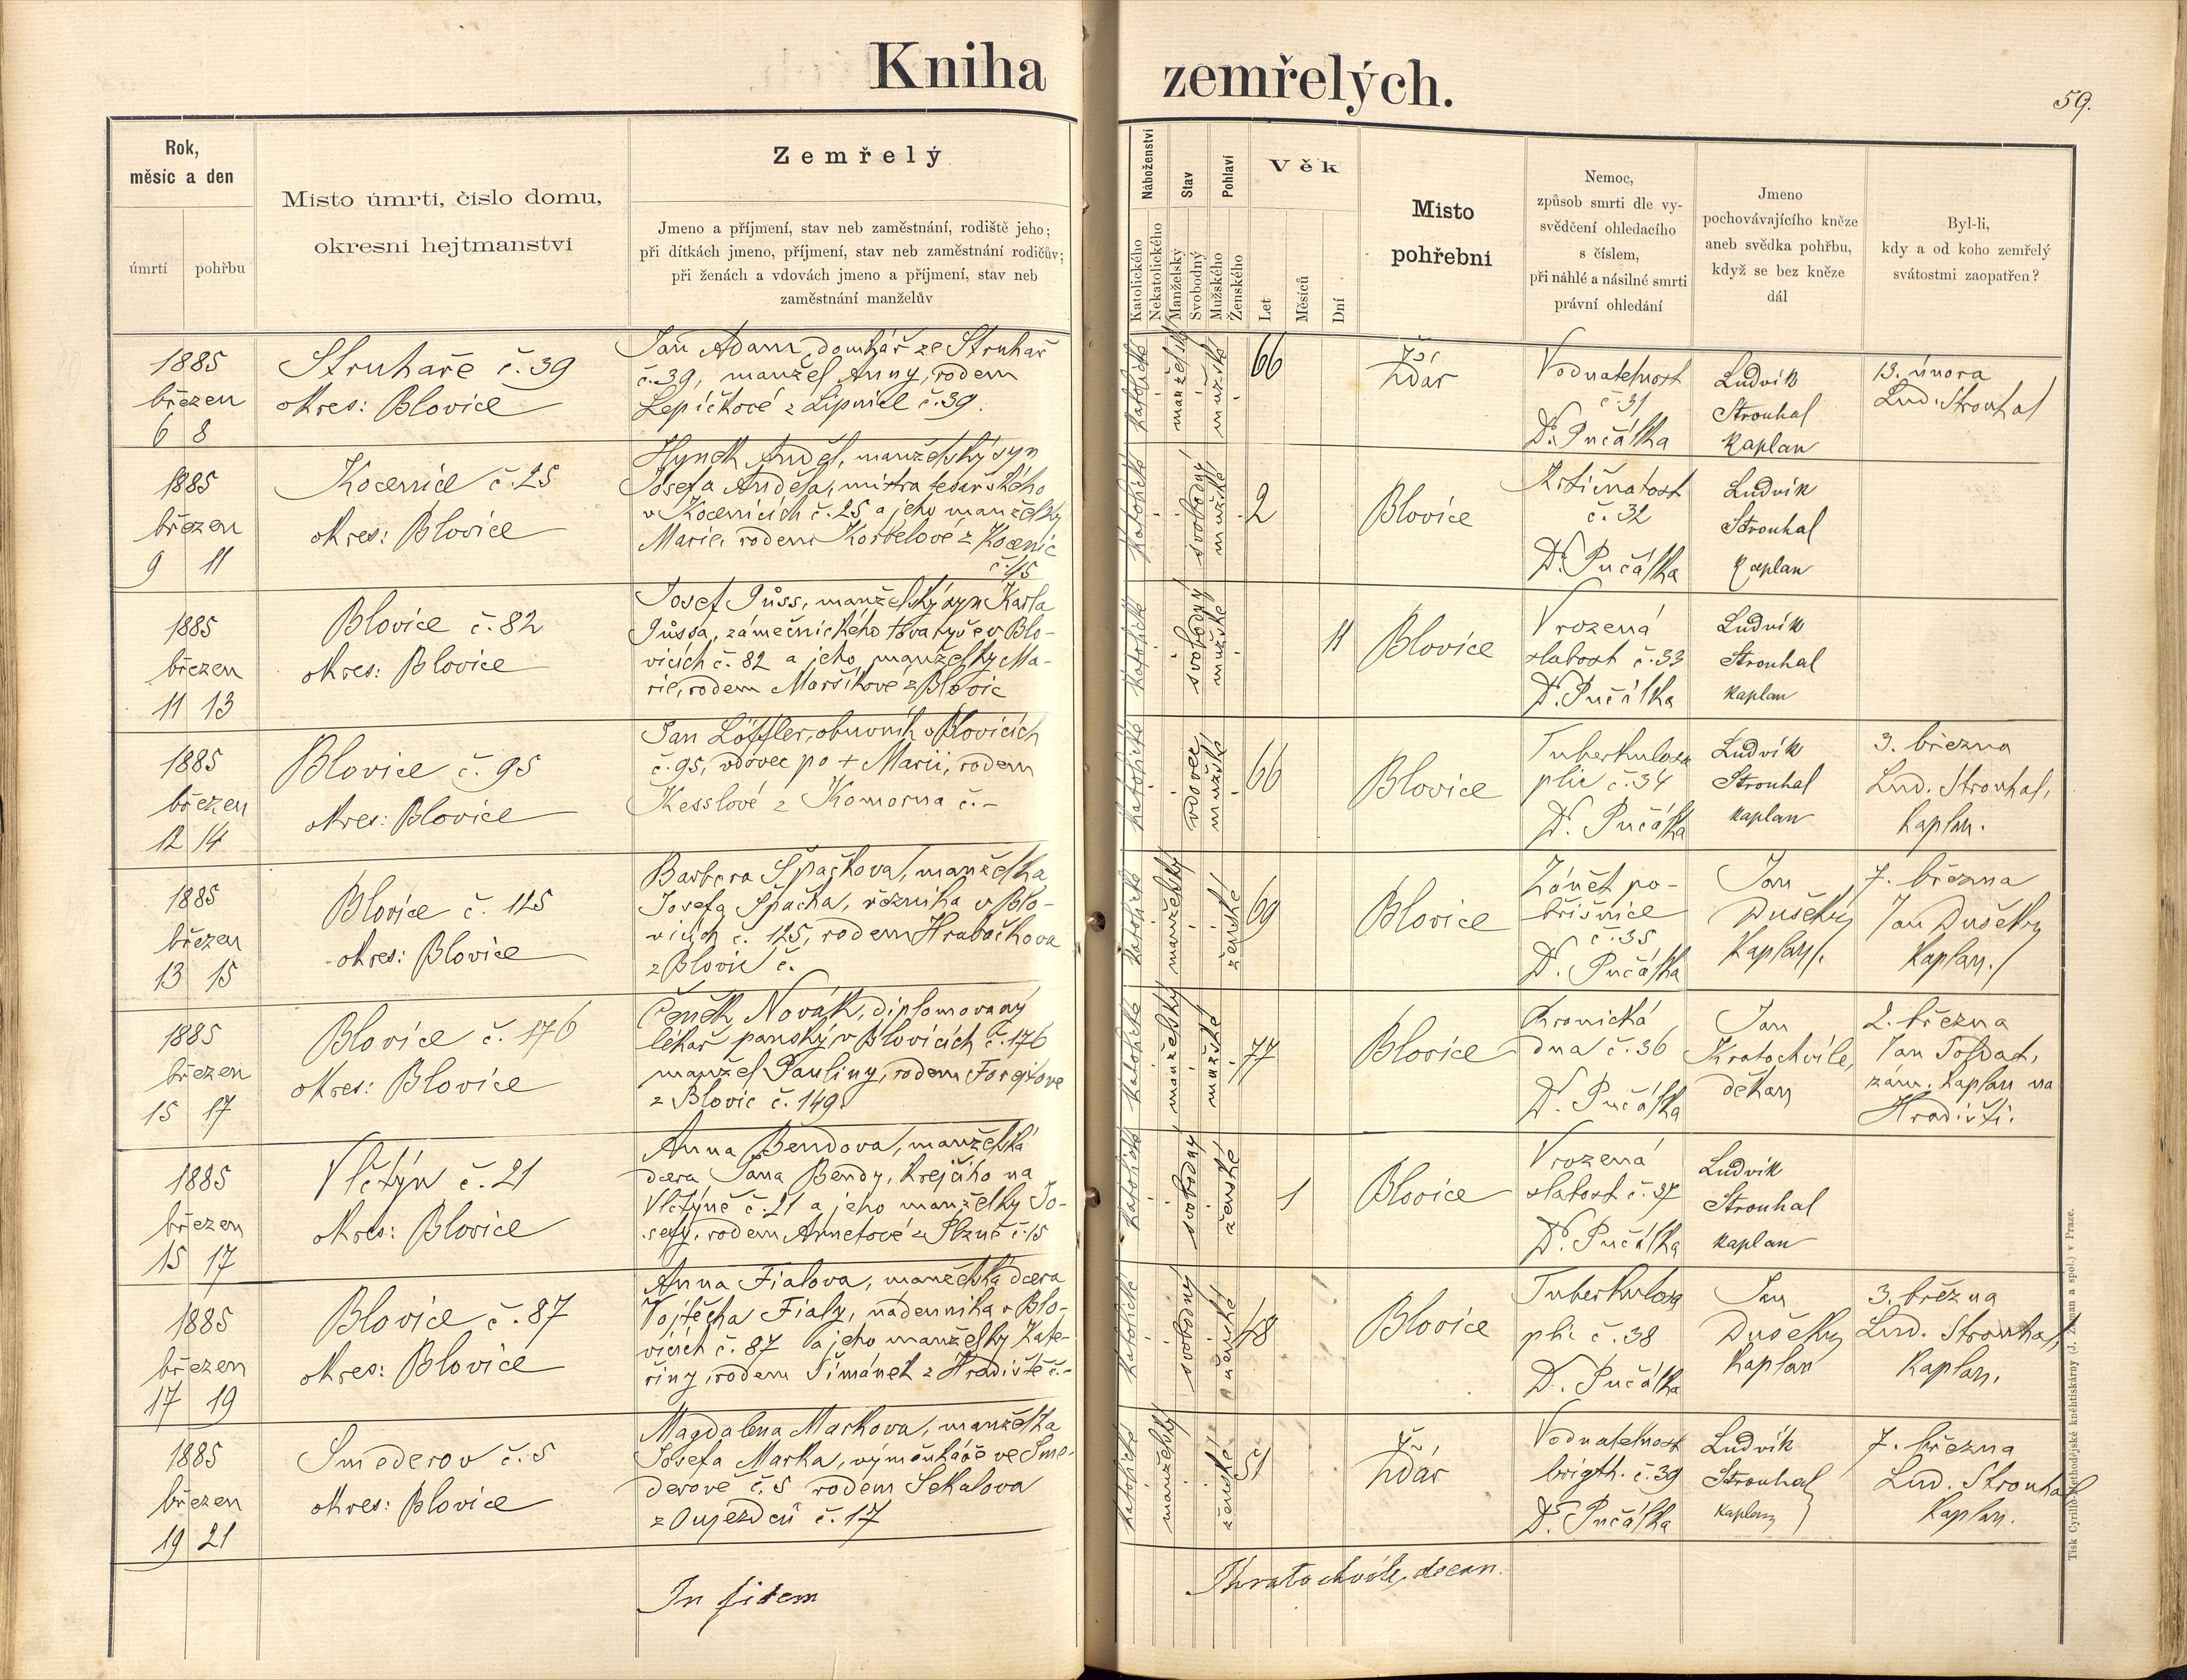 Kniha zemřelých.
59.
Rok,
měsíc a den
úmrtí
pohřbu
Místo úmrtí, číslo domu,
okresní hejtmanství
Zemřelý
Jmeno a příjmení, stav neb zaměstnání, rodiště jeho;
při dítkách jmeno, příjmení, stav neb zaměstnání rodičův;
při ženách a vdovách jmeno a příjmení, stav neb
zaměstnání manželův
Náboženství
Katolického
Nekatolického
Stav
Manželský
Svobodný
Pohlaví
Mužského
Ženského
Věk
Let
Měsíců
Dní
Místo
pohřební
Nemoc,
způsob smrti dle vy-
svědčení ohledacího
s číslem,
při náhlé a násilné smrti
právní ohledání
Jmeno
pochovávajícího kněze
aneb svědka pohřbu,
když se bez kněze
dál
Byl-li,
kdy a od koho zemřelý
svátostmi zaopatřen?
1885
březen
6 8
Struhaře č. 39
okres: Blovice
Jan Adam, domkář ze Struhař
č. 39, manžel Anny, rodem
Lepičkové z Lipnice č. 39.
katolické
manželský
mužské
66
Ždár
Vodnatelnost
č 31
Dr. Pučálka
Ludvík
Strouhal
Kaplan
13. února
Lud. Strouhal
1885
březen
9 11
Kocenice č. 25
okres: Blovice
Hynek Anděl, manželský syn
Josefa Anděla, mistra tesařského
v Kocenicích č. 25 a jeho manželky
Marie, rodem Korbelové z Kocenic
č. 15
katolické
svobodný
mužské
2
Blovice
Krtičnatost
č. 32
Dr. Pučálka
Ludvík
Strouhal
Kaplan
1885
březen
11 13
Blovice č. 82
okres: Blovice
Josef Püss, manželský syn Karla
Püssa, zámečnického tovaryše v Blo-
vicích č. 82 a jeho manželky Ma-
rie, rodem Maršíkové z Blovic
katolické
svobodný
mužské
11
Blovice
Vrozená
slabost č. 33
Dr. Pučálka
Ludvík
Strouhal
kaplan
1885
březen
12 14
Blovice č. 95
okres: Blovice
Jan Löffler, obuvník v Blovicích
č. 95, vdovec po + Marii, rodem
Kesslové z Komorna č. -
katolické
vdovec
mužské
66
Blovice
Tuberkulosa
plic č. 34
Dr. Pučálka
Ludvík
Strouhal
kaplan
3. března
Lud. Strouhal,
Kaplan.
1885
březen
13 15
Blovice č. 125
okres: Blovice
Barbora Špačkova, manželka
Josefa Špačka, řezníka v Blo-
vicích č. 125, rodem Hrabačkova
z Blovic č.
katolické
manželský
ženské
69
Blovice
Zánět po-
břišnice
č. 35
Dr. Pučálka
Jan
Dušek
Kaplan.
7. března
Jan Dušek
Kaplan.
1885
březen
15 17
Blovice č. 176
okres: Blovice
Čeněk Novák, diplomovaný
lékař panský v Blovicích č. 176
manžel Pauliny, rodem
z Blovic č. 149.
katolické
manželský
mužské
77
Blovice
Chronická
dna č. 36
Dr. Pučálka
Jan
Kratochvile,
děkan
2. března
Jan
zám. Kaplan na
Hradišti.
1885
březen
15 17
Vlčtýn č. 21
okres: Blovice
Anna Bendova, manželská
dcera Jana Bendy, krejčího na
Vlčtýně č. 21 a jeho manželky Jo-
sefy, rodem Arnetové z Plzně č. 15
katolické
svobodný
ženské
1
Blovice
Vrozená
slabost č. 37
Dr. Pučálka
Ludvík
Strouhal
kaplan
1885
březen
17 19
Blovice č. 87
okres: Blovice
Anna Fialova, manželská dcera
Vojtěcha Fialy, nádenníka v Blo-
vicích č. 87 a jeho manželky Kate-
řiny, rodem Šimánek z Hradiště č. -
katolické
svobodný
ženské
48
Blovice
Tuberkulosa
plic č. 38
Dr. Pučálka
Jan
Dušek
Kaplan
3. března
Lud. Strouhal,
Kaplan.
1885
březen
19 21
Smederov č. 5
okres: Blovice
Magdalena Markova, manželka
Josefa Marka, výměnkáře ve Sme-
derově č. 5 rodem Sekalova
z Oujezdců č. 17
katolické
manželský
ženské
51
Ždár
Vodnatelnost
brigth. č. 39
Dr. Pučálka
Ludvík
Strouhal
kaplan
7. března
Lud. Strouhal
Kaplan.
In fidem
Kratochvile, decan.
Tisk Cyrillo-Methodějské knihtiskárny (J. Zeman a spol.) v Praze.